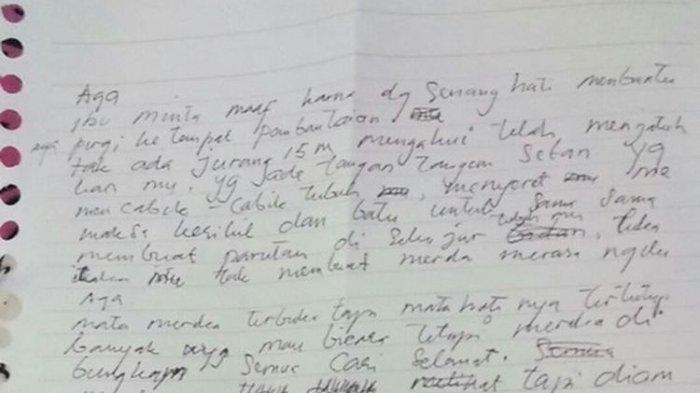 Aga
ibu minta maaf karna dg senang hati membantu
aga pirgi ke tempat pambantaian
tak ada jurang 15 m mengahui telah mengatuh
kan mu. yg jade tangan tangan setan yg
men cabik - cabik tubuh mu, menyeret me
maksa kerikil dan batu untuk sama sama
membuat parutan di sekujur tubuh mu. tidak
tak membuat merda merasa ngilu
Aga
mata merdea terbuka tapi mata hati nya tertutup
banyak yg mau bicara tetapi merdea di
bungkam semua cari selamat.
tapi diam